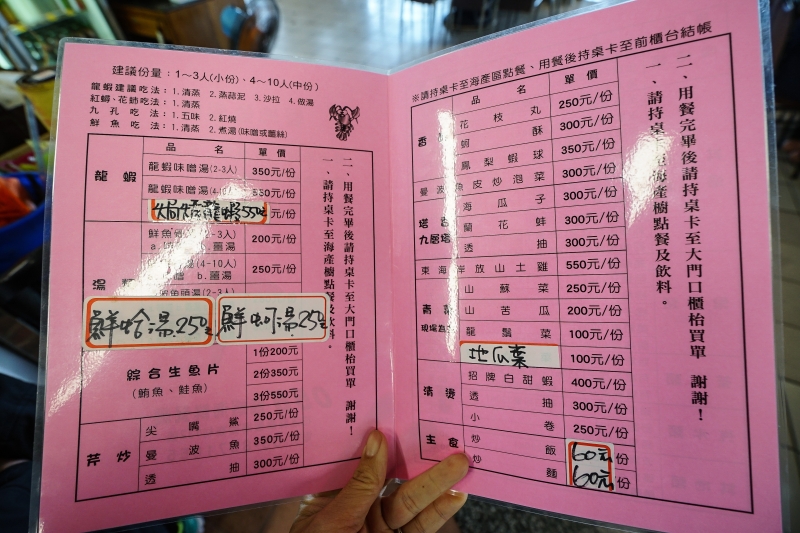 建議份量：1～3人(小份)、4～10人(中份)
龍蝦建議吃法：1.清蒸 2.蒸蒜泥 3.沙拉 4.做湯
紅蟳、花蚶吃法：1.清蒸
九孔吃法：1.五味 2.紅燒
鮮魚吃法：1.清蒸 2.煮湯(味噌或薑絲)
品名 單價
龍蝦
龍蝦味噌湯(2-3人) 350元/份
龍蝦味噌湯
焗烤龍蝦550元/份
鮮魚 200元/份
a. b.薑湯
(4-10人) 250元/份
b.薑湯
湯
鮮蛤湯.250
鮮蚵湯.250
綜合生魚片
(鮪魚、鮭魚)
1份200元
2份350元
3份550元
芹炒
尖嘴鯊 250元/份
曼波魚 350元/份
透抽 300元/份
一、請持桌卡至海產櫥點餐及飲料。
二、用餐完畢後請持桌卡至大門口櫃枱買單 謝謝！
※請持桌卡至海產區點餐、用餐後持桌卡至前櫃台結帳
品名 單價
花枝丸 250元/份
蚵酥 300元/份
鳳梨蝦球 350元/份
曼波魚皮炒泡菜 300元/份
海瓜子 300元/份
蘭花蚌 300元/份
透抽 300元/份
九層塔
東海岸放山土雞 550元/份
山蘇菜 250元/份
山苦瓜 200元/份
龍鬚菜 100元/份
地瓜葉 100元/份
清燙
招牌白甜蝦 400元/份
透抽 300元/份
小卷 250元/份
主食
炒飯 60元/份
炒麵 60元/份
一、請持桌卡至海產櫥點餐及飲料。
二、用餐完畢後請持桌卡至大門口櫃枱買單 謝謝！